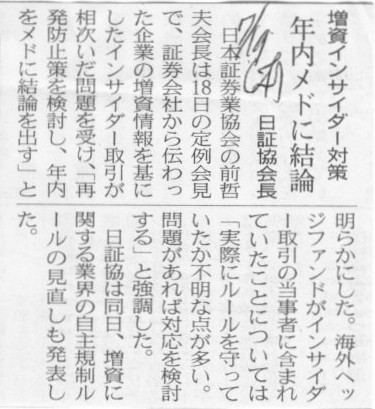 増資インサイダー対策
年内メドに結論
日証協会長
7/19(木)
日本証券業協会の前哲
夫会長は18日の定例会見
で、証券会社から伝わっ
た企業の増資情報を基に
したインサイダー取引が
相次いだ問題を受け、「再
発防止策を検討し、年内
をメドに結論を出す」と
明らかにした。海外ヘッ
ジファンドがインサイダ
ー取引の当事者に含まれ
ていたことについては
「実際にルールを守って
いたか不明な点が多い。
問題があれば対応を検討
する」と強調した。
日証協は同日、増資に
関する業界の自主規制ル
ールの見直しも発表し
た。